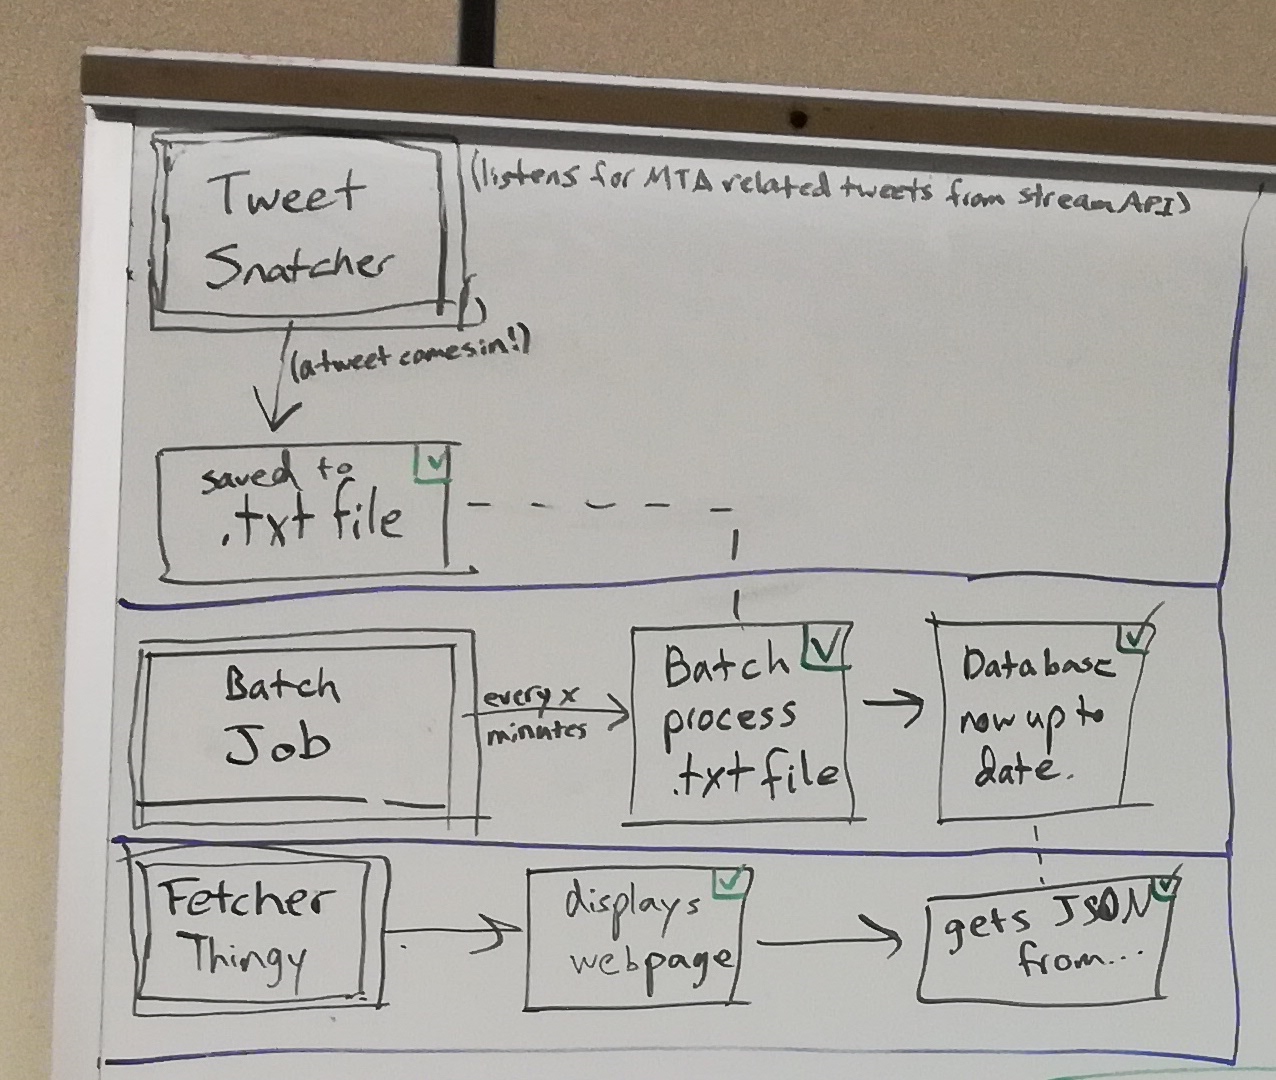 Tweet
Snatcher
(listens for MTA related tweets from stream API)
(a tweet comes in!)
saved to
.txt file
Batch
Job
every x
minutes
Batch
process
.txt file
Database
now up to
date.
Fetcher
Thingy
displays
webpage
gets JSON
from...